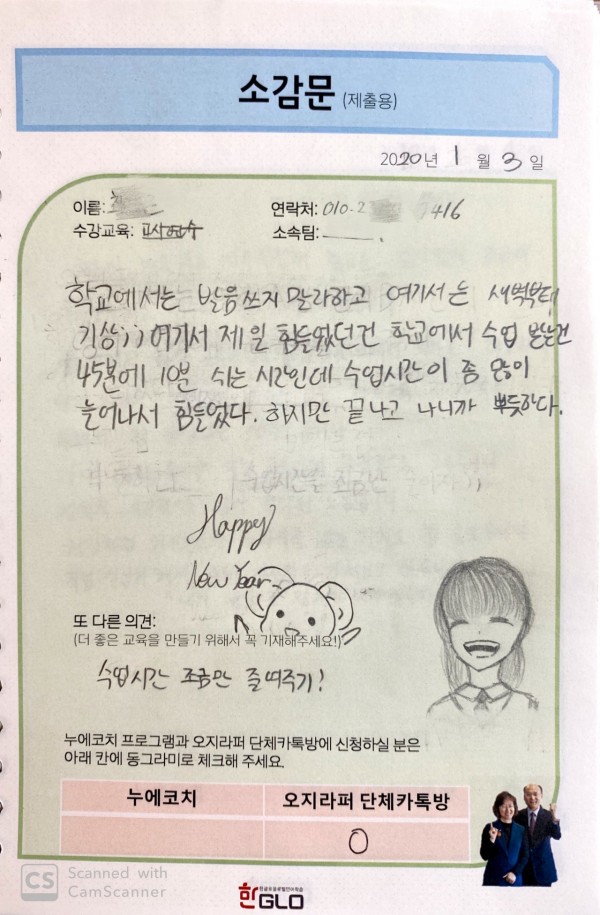 소감문 (제출용)
2020년 1월 3일
이름:
연락처: 010-2 7416
수강교육:
소속팀:
학교에서는 발음쓰지 말라하고 여기서는 새벽부터
기상;; 여기서 제일 힘들었던건 학교에서 수업 받는건
45분에 10분 쉬는 시간인데 수업시간이 좀 많이
늘어나서 힘들었다. 하지만 끝나고 나니까 뿌듯하다.
수업시간을 조금만
Happy
New Year
또 다른 의견:
(더 좋은 교육을 만들기 위해서 꼭 기재해주세요!)
수업시간 조금만 줄여주기!
누에코치 프로그램과 오지라퍼 단체카톡방에 신청하실 분은
아래 칸에 동그라미로 체크해 주세요.
누에코치 오지라퍼 단체카톡방
O
CS Scanned with
CamScanner
한GLO